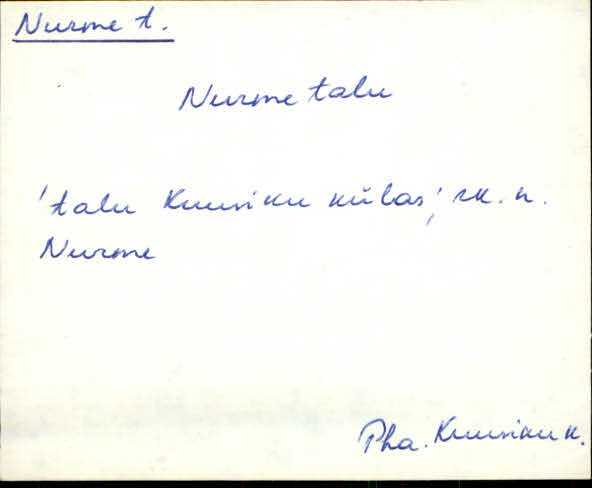 Nurme t.
Nurme talu
'talu Kuusiku külas', rk. n.
Nurme
Pha. Kuusiku k.